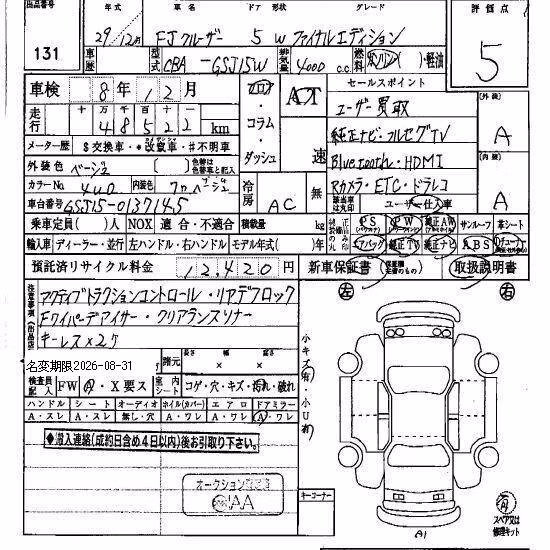 出品番号 年式 車名 ドア 形状 グレード 評価点
131 29/12月 FJクルーザー 5 W ファイナルエディション 5
車歴 型式 CBA-GSJ15W 排気量 4000 c.c. 燃料 ガソリン( )・軽油
車検 8年12月 フロア・コラム・ダッシュ AT セールスポイント 外装 A
走行 十万千百十一 48522 km 速 ユーザー買取
メーター歴 $交換車・*改竄車・#不明車 純正ナビ・フルセグTV
外装色 ベージュ ( ) 色替は色替車名と記入 Bluetooth・HDMI 内装 A
カラーNo. 4U0 内装色 冷房 AC 無 Rカメラ・ETC・ドラレコ
車台番号 GSJ15-0137145 該当車は丸印 ユーザー仕入車
乗車定員( )人 NOX 適合・不適合 積載量 kg PS PW 純正AW サンルーフ 革シート
輸入車 ディーラー・並行 左ハンドル・右ハンドル モデル年式( )年 エアバック 純正TV 純正ナビ ABS
預託済リサイクル料金 12,420円 新車保証書 取扱説明書
注意事項(出品店) アクティブトラクションコントロール・リアデフロック 左 右
Fワイパーデアイサー・クリアランスソナー
キーレス×2ケ
名変期限2026-08-31 諸元 長さ 幅 高さ × × 小キズ有・小U有
検査員記入 FW Q・X要ス 室内シート コゲ・穴・キズ・汚れ・破れ
ハンドル シート オーディオ ホイル(カバー) エアロ ドアミラー
A・スレ A・スレ 無し・穴 A・ワレ A・ワレ A・ワレ
◆搬入連絡(成約日含め4日以内)後お引取り下さい。
オークション
JAA
キーコーナー
A1
スペアタスは修理キット